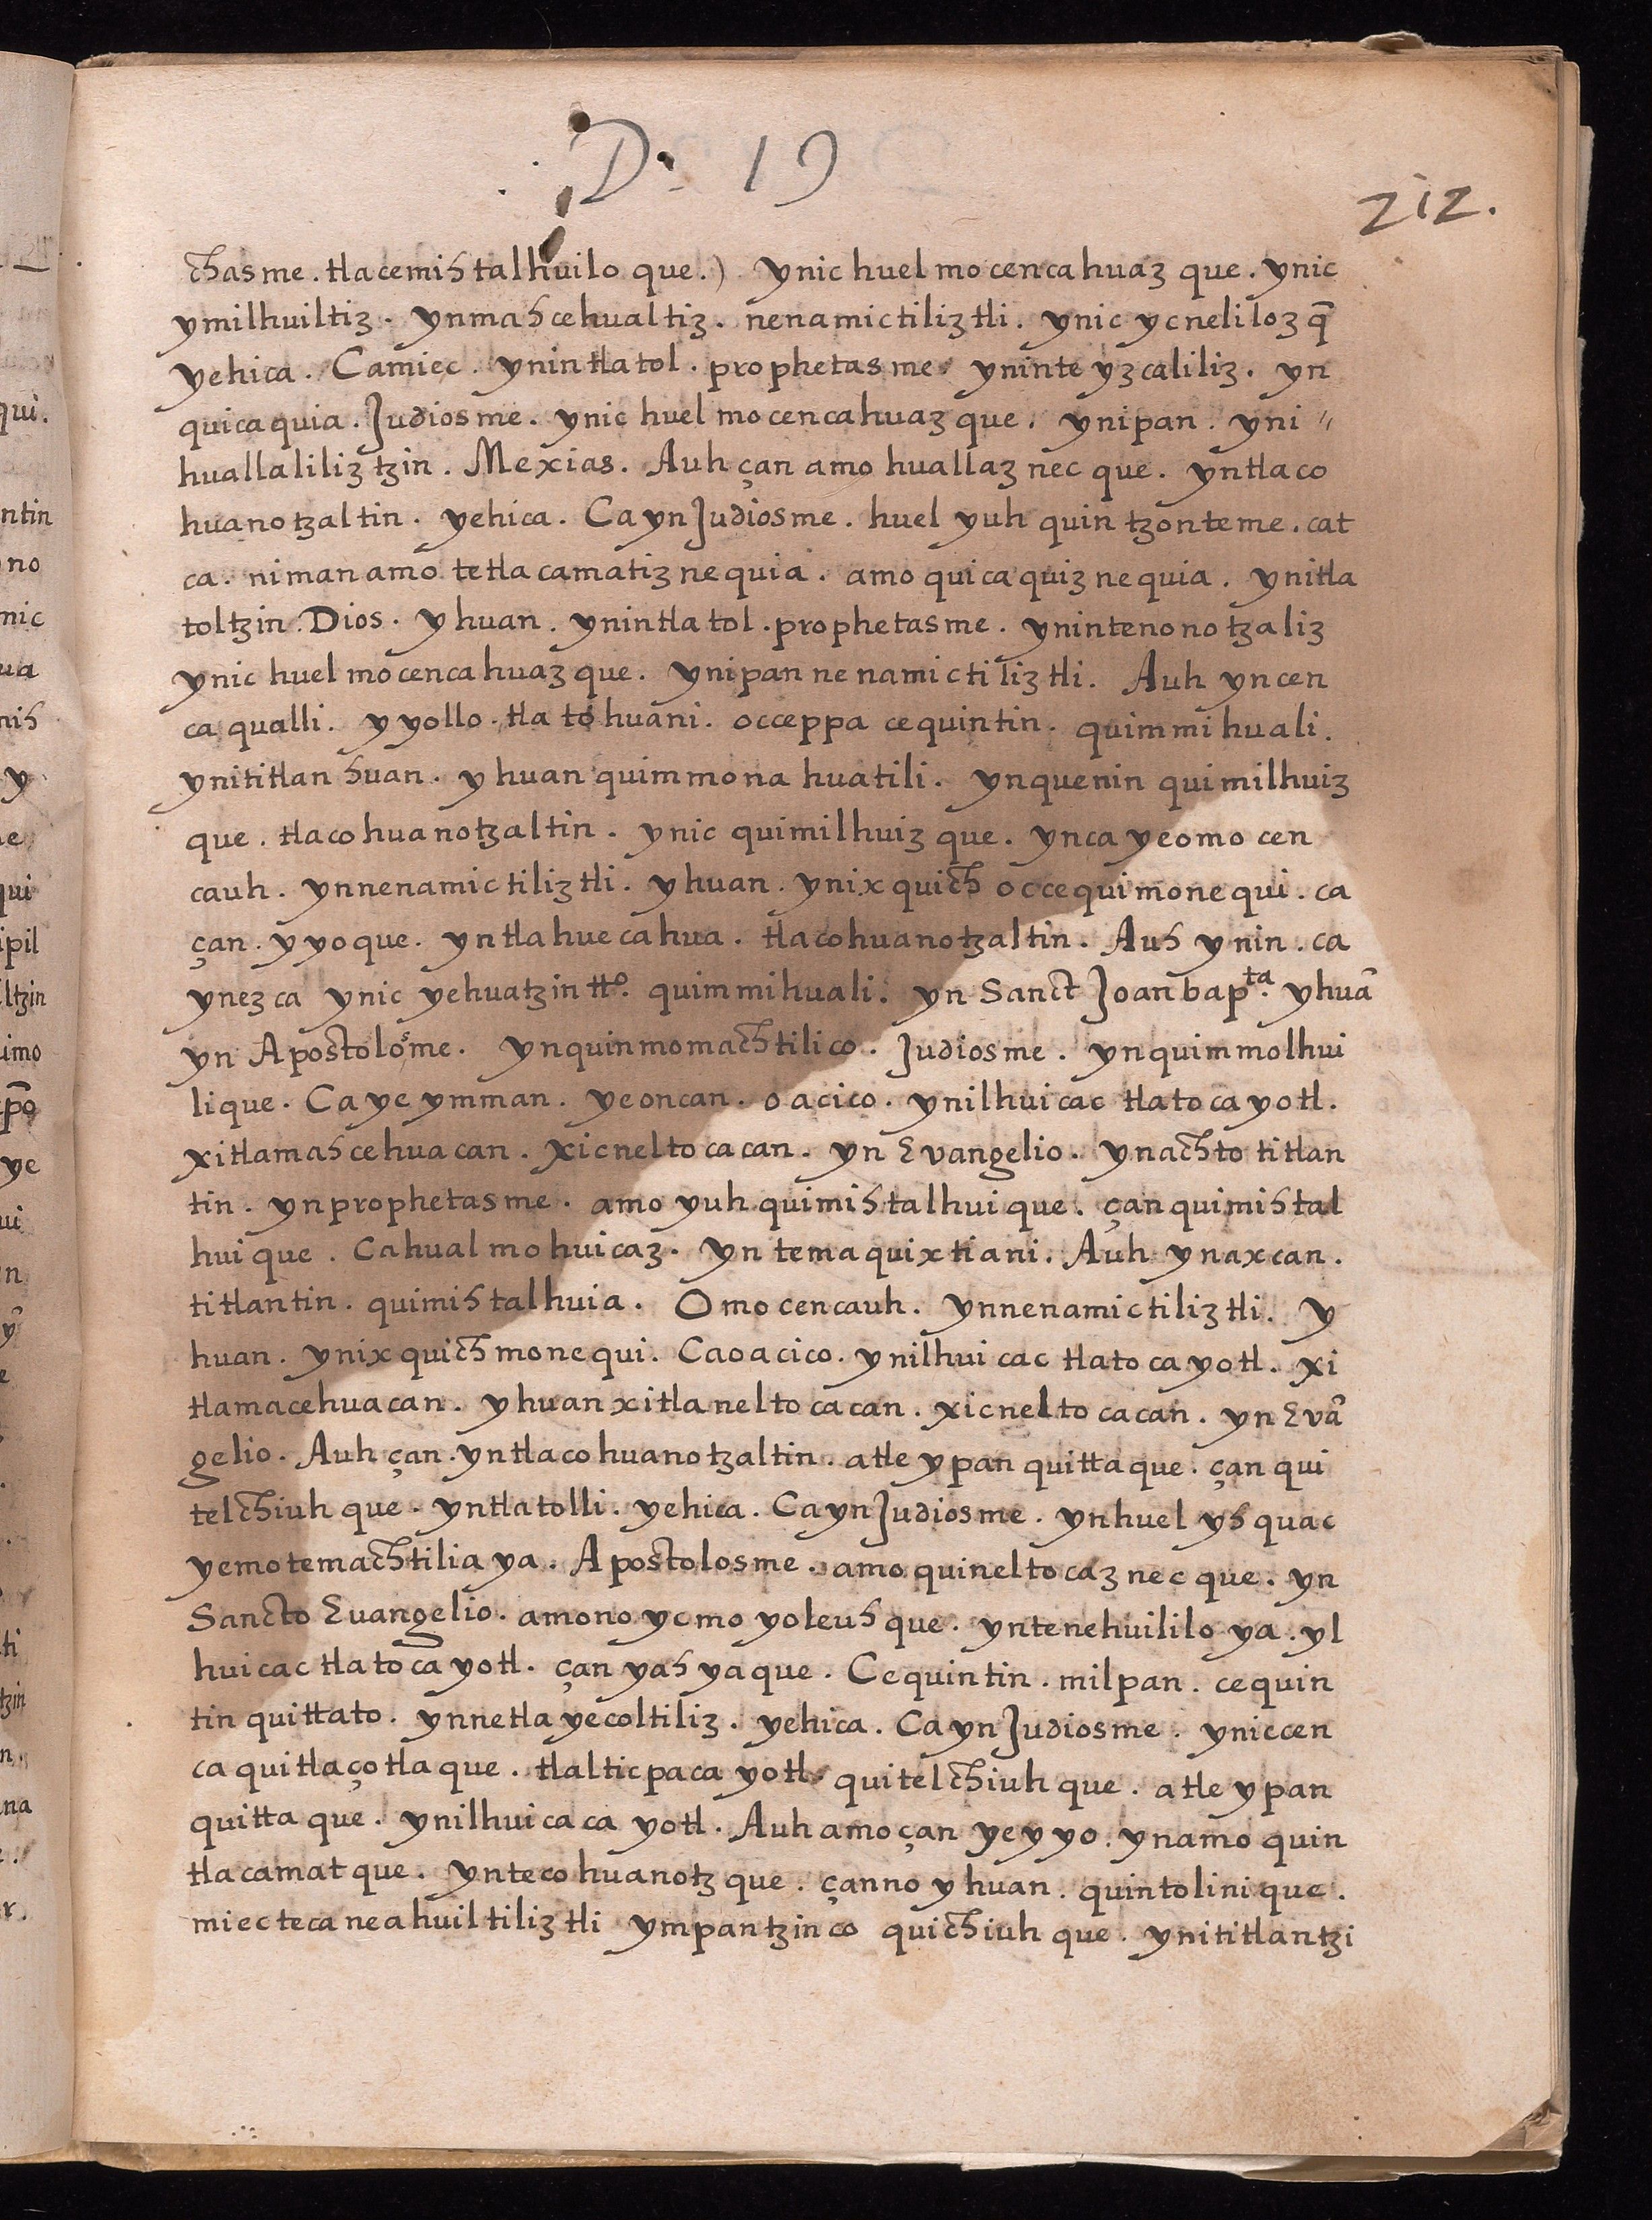 Dª 19
212.
chasme. tlacemihtalhuilo que.) ynic huel mo cencahuaz que. ynic
ymilhuiltiz. ynmahcehualtiz. nenamictiliztli. ynic ycneliloz q̃
yehica. Camiec. ynintlatol. prophetasme. yninte yzcaliliz. yn
quicaquia. Judiosme. ynic huel mocencahuaz que. ynipan. yni"
huallaliliz tzin. Mexias. Auh çan amo huallaz nec que. yntlaco
huanotzaltin. yehica. Ca yn Judiosme. huel yuh quin tzonteme. cat
ca. niman amo tetlacamatiz nequia. amo quicaquiz nequia. ynitla
toltzin Dios. yhuan. ynintlatol. prophetasme. ynintenonotzaliz
ynic huel mocencahuaz que. ynipan nenamictiliztli. Auh yncen
ca qualli. yyollo. tlatohuani. occeppa cequintin. quimmihuali.
ynititlanhuan. yhuan quimmonahuatili. ynquenin quimilhuiz
que. tlacohuanotzaltin. ynic quimilhuiz que. ynca yeomo cen
cauh. ynnenamictiliztli. yhuan. ynixquich occequimonequi. ca
çan. yyoque. yntlahuecahua. tlacohuanotzaltin. Auh ynin. ca
ynezca ynic yehuatzin tt.º quimmihuali. yn Sanct Joan bap.ta yhuã
yn Apostolosme. ynquinmomachtilico. Judiosme. ynquimmolhui
lique. Ca ye ymman. yeoncan. oacico. ynilhuicac tlatocayotl.
xitlamahcehuacan. xicneltocacan. yn Evangelio. ynachto titlan
tin. ynprophetasme. amo yuh quimihtalhuique. çanquimihtal
huique. Cahualmohuicaz. yn temaquixtiani. Auh ynaxcan.
titlantin. quimihtalhuia. Omocencauh. ynnenamictiliztli. y
huan. ynixquich monequi. Caoacico. ynilhuicac tlatocayotl. xi
tlamacehuacan. yhuan xitlaneltocacan. xicneltocacan. yn Evã
gelio. Auh çan. yntlacohuanotzaltin. atle ypan quittaque. çan qui
telchiuhque. yntlatolli. yehica. Ca yn Judiosme. ynhuel yhquac
yemotemachtiliaya. Apostolosme. amo quineltocaz nec que. yn
Sancto Evangelio. amono ycmo yoleuhque. yntenehuililoya. yl
huicac tlatocayotl. çan yahyaque. Cequintin. milpan. cequin
tin quittato. ynnetlayecoltiliz. yehica. Ca yn Judiosme. yniccen
ca quitlaçotlaque. tlalticpacayotl. quitelchiuhque. atle ypan
quittaque. ynilhuicacayotl. Auh amo çan yeyyo. ynamo quin
tlacamatque. yntecohuanotzque. çanno yhuan. quintolinique.
miectecaneahuiltiliztli ympantzinco quichiuhque. ynititlantzi